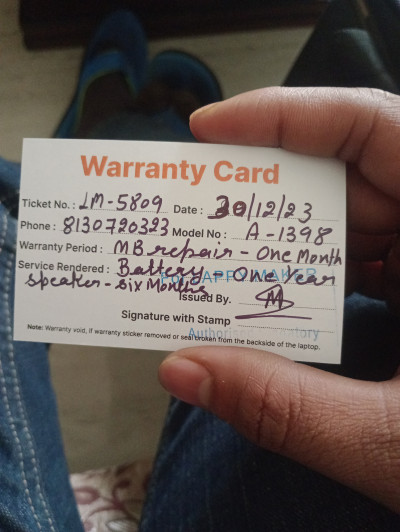 Warranty Card
Ticket No. : LM-5809 Date : 30/12/23
Phone : 8130720323 Model No : A-1398
Warranty Period : MB repair - One Month
Service Rendered : Battery - One Year
speaker - six Months
Issued By.
Signature with Stamp
Note: Warranty void, if warranty sticker removed or seal broken from the backside of the laptop.